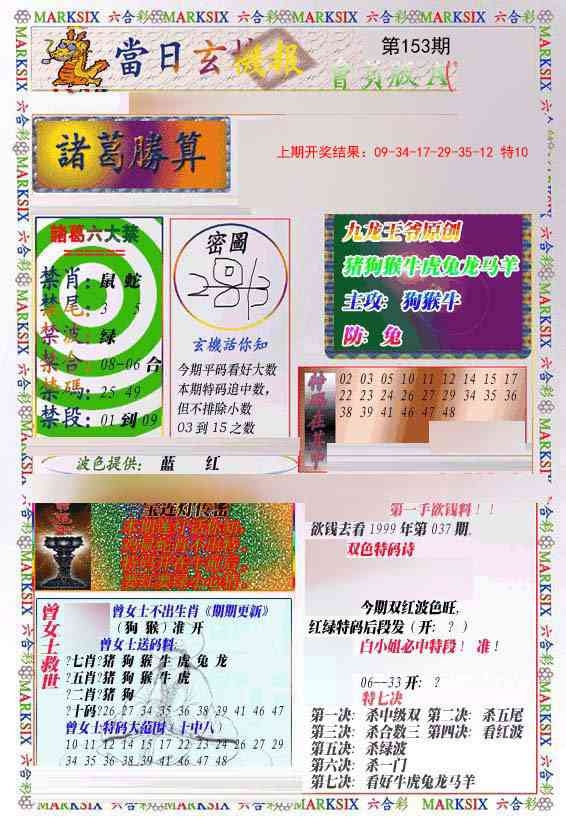 MARKSIX 六合彩 MARKSIX 六合彩 MARKSIX 六合彩 MARKSIX 六合彩
當日玄機報
第153期
會員版A
諸葛勝算
上期开奖结果：09-34-17-29-35-12 特10
諸葛六大禁
禁肖：鼠 蛇
禁尾：3 5
禁波：绿
禁合：08-06 合
禁碼：25 49
禁段：01 到 09
密圖
玄機話你知
今期平码看好大数
本期特码追中数，
但不排除小数
03 到 15 之数
九龙王爷原创
猪狗猴牛虎兔龙马羊
主攻：狗猴牛
防：兔
02 03 05 10 11 12 14 15 17
22 23 24 26 27 29 34 35 36
38 39 41 46 47 48
波色提供： 蓝 红
曾女士救世
曾女士不出生肖《期期更新》
（狗 猴）准 开
曾女士送码料:
?七肖?猪 狗 猴 牛 虎 兔 龙
?五肖?猪 狗 猴 牛 虎
?二肖?猪 狗
?十码?26 27 34 35 36 38 39 41 46 47
曾女士特码大范围（十中八）
10 11 12 14 15 17 22 23 24 26 27 29
34 35 36 38 39 41 46 47 48
第一手欲钱料！！
欲钱去看 1999 年第 037 期.
双色特码诗
今期双红波色旺，
红绿特码后段发（开：？）
白小姐必中特段！ 准！
06—33 开：？
特七决
第一决：杀中级双 第二决：杀五尾
第三决：杀合数三 第四决：看红波
第五决：杀绿波
第六决：杀一门
第七决：看好牛虎兔龙马羊
MARKSIX 六合彩 MARKSIX 六合彩 MARKSIX 六合彩 MARKSIX 六合彩